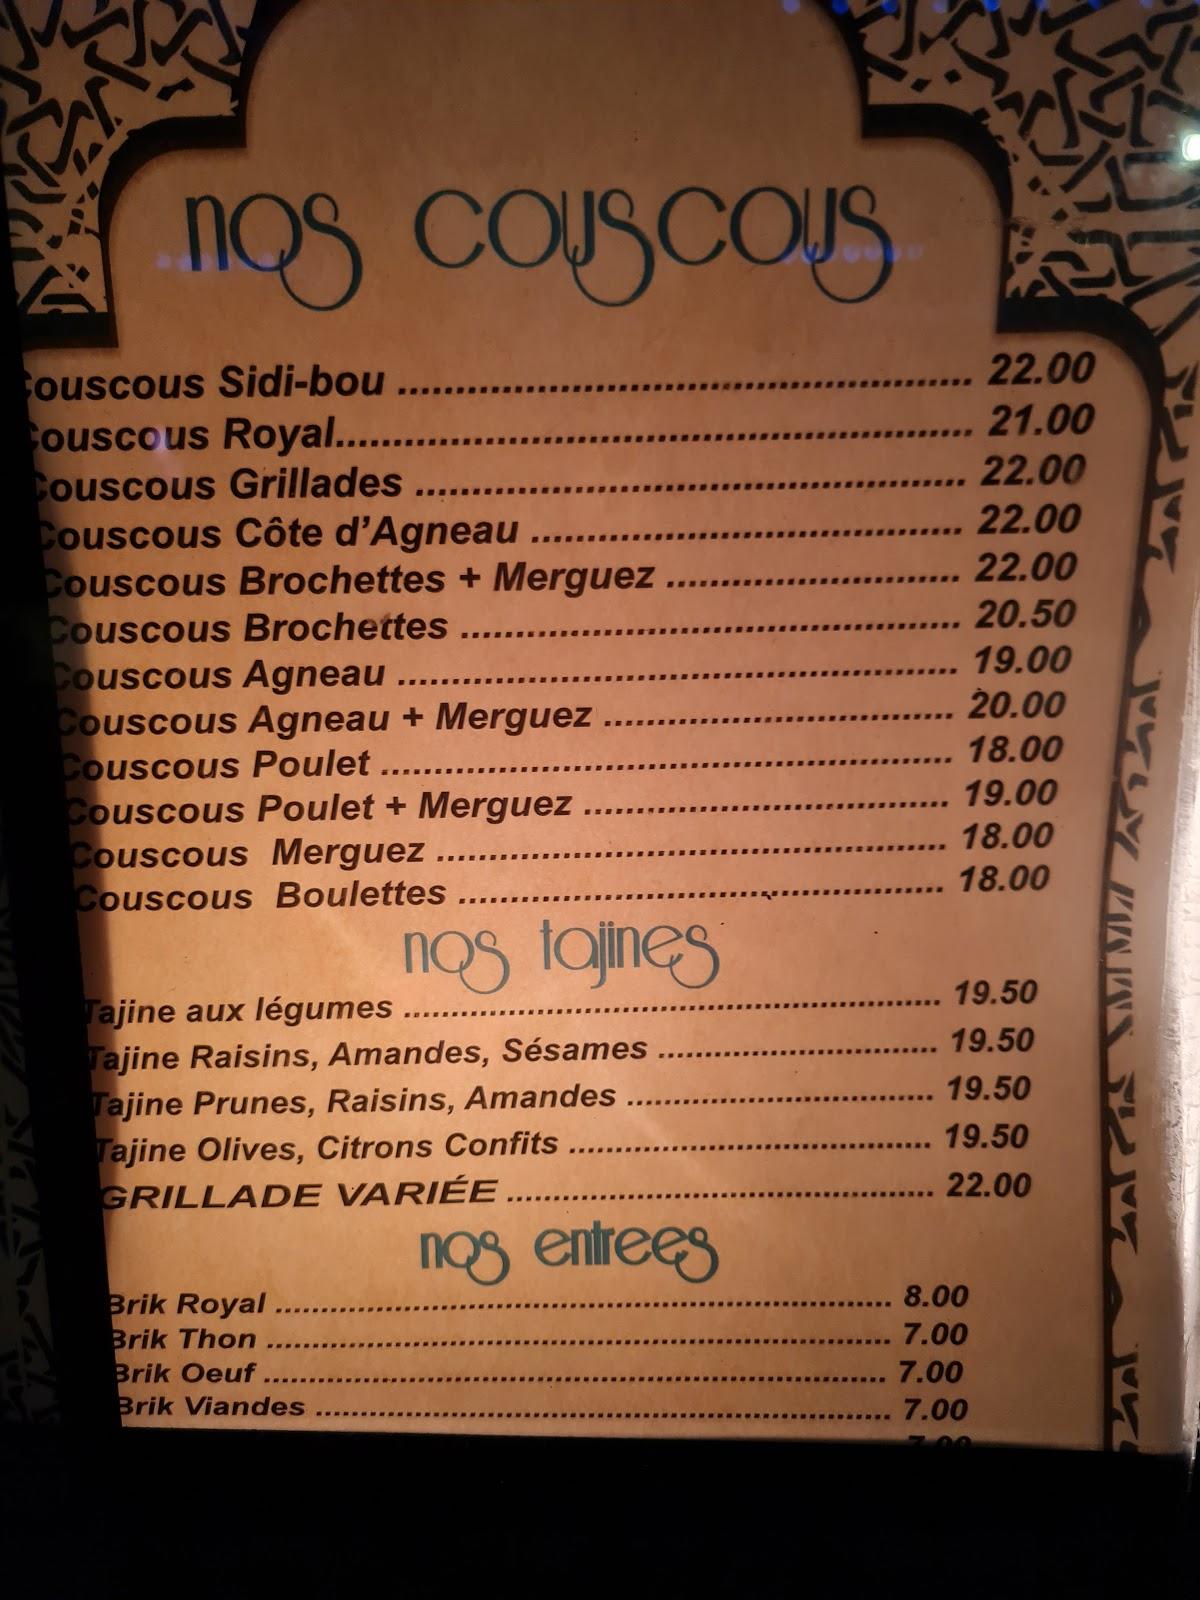 nos couscous
Couscous Sidi-bou ........................................ 22.00
Couscous Royal........................................ 21.00
Couscous Grillades ........................................ 22.00
Couscous Côte d'Agneau ........................................ 22.00
Couscous Brochettes + Merguez ........................................ 22.00
Couscous Brochettes ........................................ 20.50
Couscous Agneau ........................................ 19.00
Couscous Agneau + Merguez ........................................ 20.00
Couscous Poulet ........................................ 18.00
Couscous Poulet + Merguez ........................................ 19.00
Couscous Merguez ........................................ 18.00
Couscous Boulettes ........................................ 18.00
nos tajines
Tajine aux légumes ........................................ 19.50
Tajine Raisins, Amandes, Sésames ........................................ 19.50
Tajine Prunes, Raisins, Amandes ........................................ 19.50
Tajine Olives, Citrons Confits ........................................ 19.50
GRILLADE VARIÉE ........................................ 22.00
nos entrees
Brik Royal ........................................ 8.00
Brik Thon ........................................ 7.00
Brik Oeuf ........................................ 7.00
Brik Viandes ........................................ 7.00
7.00